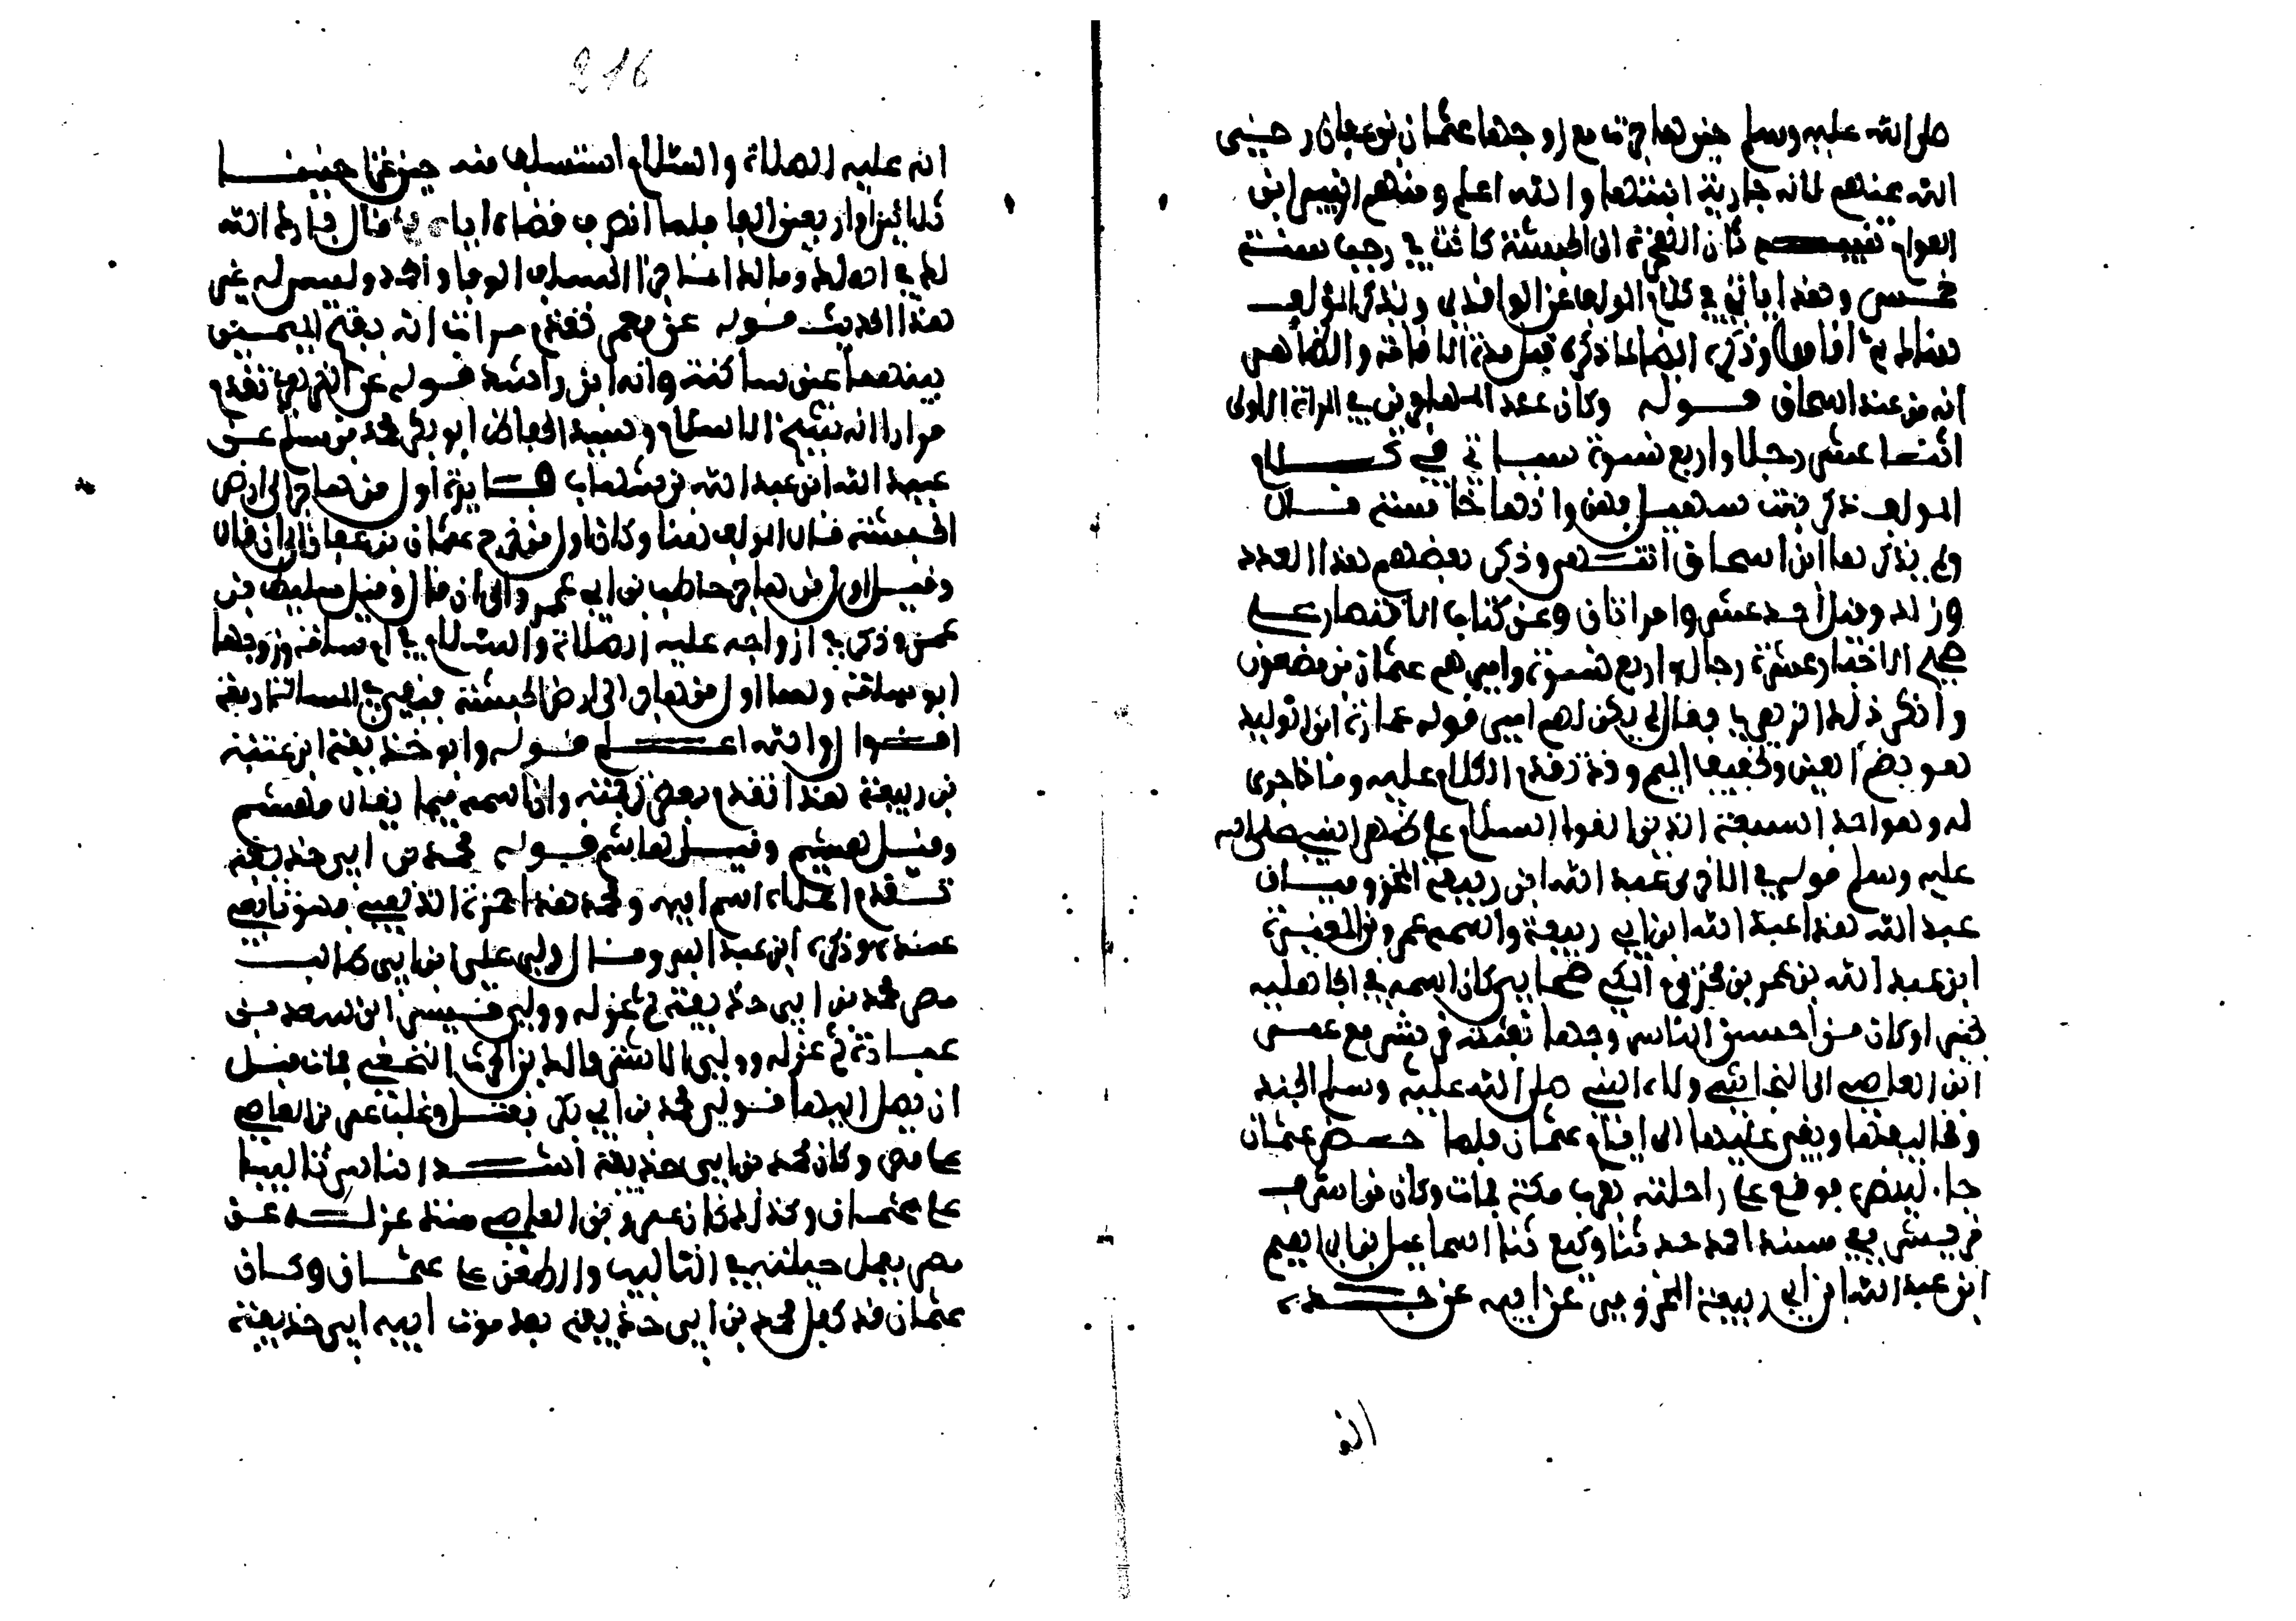 صلى الله عليه وسلم حين هاجرت مع زوجها عثمان بن عفان رضي
الله عنهم لانه جارية ابنتها والله اعلم ومنهم الزبير ابن
العوام تنبيه كان الهجرة الى الحبشة كانت في رجب سنة
خمس وهذا ياتي في كلام المولف عن الواقدي ويذكر المولف
هناك وذكره ايضا لما ذكره قبل مدة الاقامة والظاهر
انه من عند اسحاق قوله وكان عدد المهاجرين في المرة الاولى
اثنا عشر رجلا واربع نسوة سياتي في كلام
المولف ذكر بنت سهيل فهن اذا خامسة قال
ولم يذكرها ابن اسحاق انتهى وذكر بعضهم هذا العدد
وزاد وقيل احد عشر وامراتان وعن كتاب الاقتصار على
صحيح الاخبار عشرة رجال واربع نسوة واميرهم عثمان بن مضعون
وانكر ذلك الزهري فقال لم يكن لهم امير قوله عمارة ابن الوليد
هو بضم العين وتخفيف الميم وقد تقدم الكلام عليه وما جرى
له وهو احد السبعة الذين القوا السلا على ظهر النبي صلى الله
عليه وسلم قوله في الاخرى عبد الله ابن ربيعة المخزوميان
عبد الله هذا عبد الله ابن ابي ربيعة واسمه عمرو بن المغيرة
ابن عبد الله بن عمر بن مخزوم المكي صحابي كان اسمه في الجاهلية
بحيرا وكان من احسن الناس وجها بعثته قريش مع عمرو
ابن العاصي الى النجاشي ولاه النبي صلى الله عليه وسلم الجند
ومخاليفها وبقي عليها الى ايام عثمان فلما حصر عثمان
جاء لينصره فوقع عن راحلته بقرب مكة فمات وكان من اشراف
قريش ففي مسند احمد حدثنا وكيع ثنا اسماعيل بن ابراهيم
ابن عبد الله ابن ابي ربيعة المخزومي عن ابيه عن جده
انه
216
انه عليه الصلاة والسلام استسلف منه حين غزا حنينا
ثلاثين او اربعين الفا فلما انصرف قضاه اياه فقال بارك الله
لك في اهلك ومالك انما جزاء السلف الوفا والحمد وليس له غير
هذا الحديث قوله عن معمر تقدم مرات انه بفتح الميمين
بينهما عين ساكنة وانه ابن راشد قوله عن الزهري تقدم
مرارا انه شيخ الاسلام وسيد الحفاظ ابو بكر محمد بن مسلم بن
عبيد الله ابن عبد الله بن شهاب فايدة اول من هاجر الى ارض
الحبشة قال المولف هنا وكان اول من خرج عثمان بن عفان الى ان قال
وقيل اول من هاجر حاطب بن ابي عمرو الى ان قال وقيل سليط بن
عمرو وذكر في ازواجه عليه الصلاة والسلام في ام سلمة وزوجها
ابو سلمة وهما اول من هاجر الى ارض الحبشة فتصير في المسالة اربعة
اقوال والله اعلم قوله وابو حذيفة ابن عتبة
بن ربيعة هذا تقدم بعض ترجمته وان اسمه فيما يقال مهشم
وقيل هشيم وقيل هاشم قوله محمد بن ابي حذيفة
تقدم اعلاه اسم ابيه ومحمد هذا حمزة الذهبي فهو تابعي
عنده وذكره ابن عبد البر وقال ولي علي ابن ابي طالب
مصر محمد بن ابي حذيفة ثم عزله وولي قيس ابن سعد بن
عبادة ثم عزله وولى الاشتر مالك بن الحرث النخعي فمات قبل
ان يصل اليها فولي محمد بن ابي بكر فقتل وغلب عمرو بن العاصي
على مصر وكان محمد بن ابي حذيفة اشد الناس تاليبا
على عثمان وكذلك كان عمرو بن العاصي منذ عزله عن
مصر يعمل حيلته في التاليب والطعن على عثمان وكان
عثمان قد كفل محمد بن ابي حذيفة بعد موت ابيه ابي حذيفة